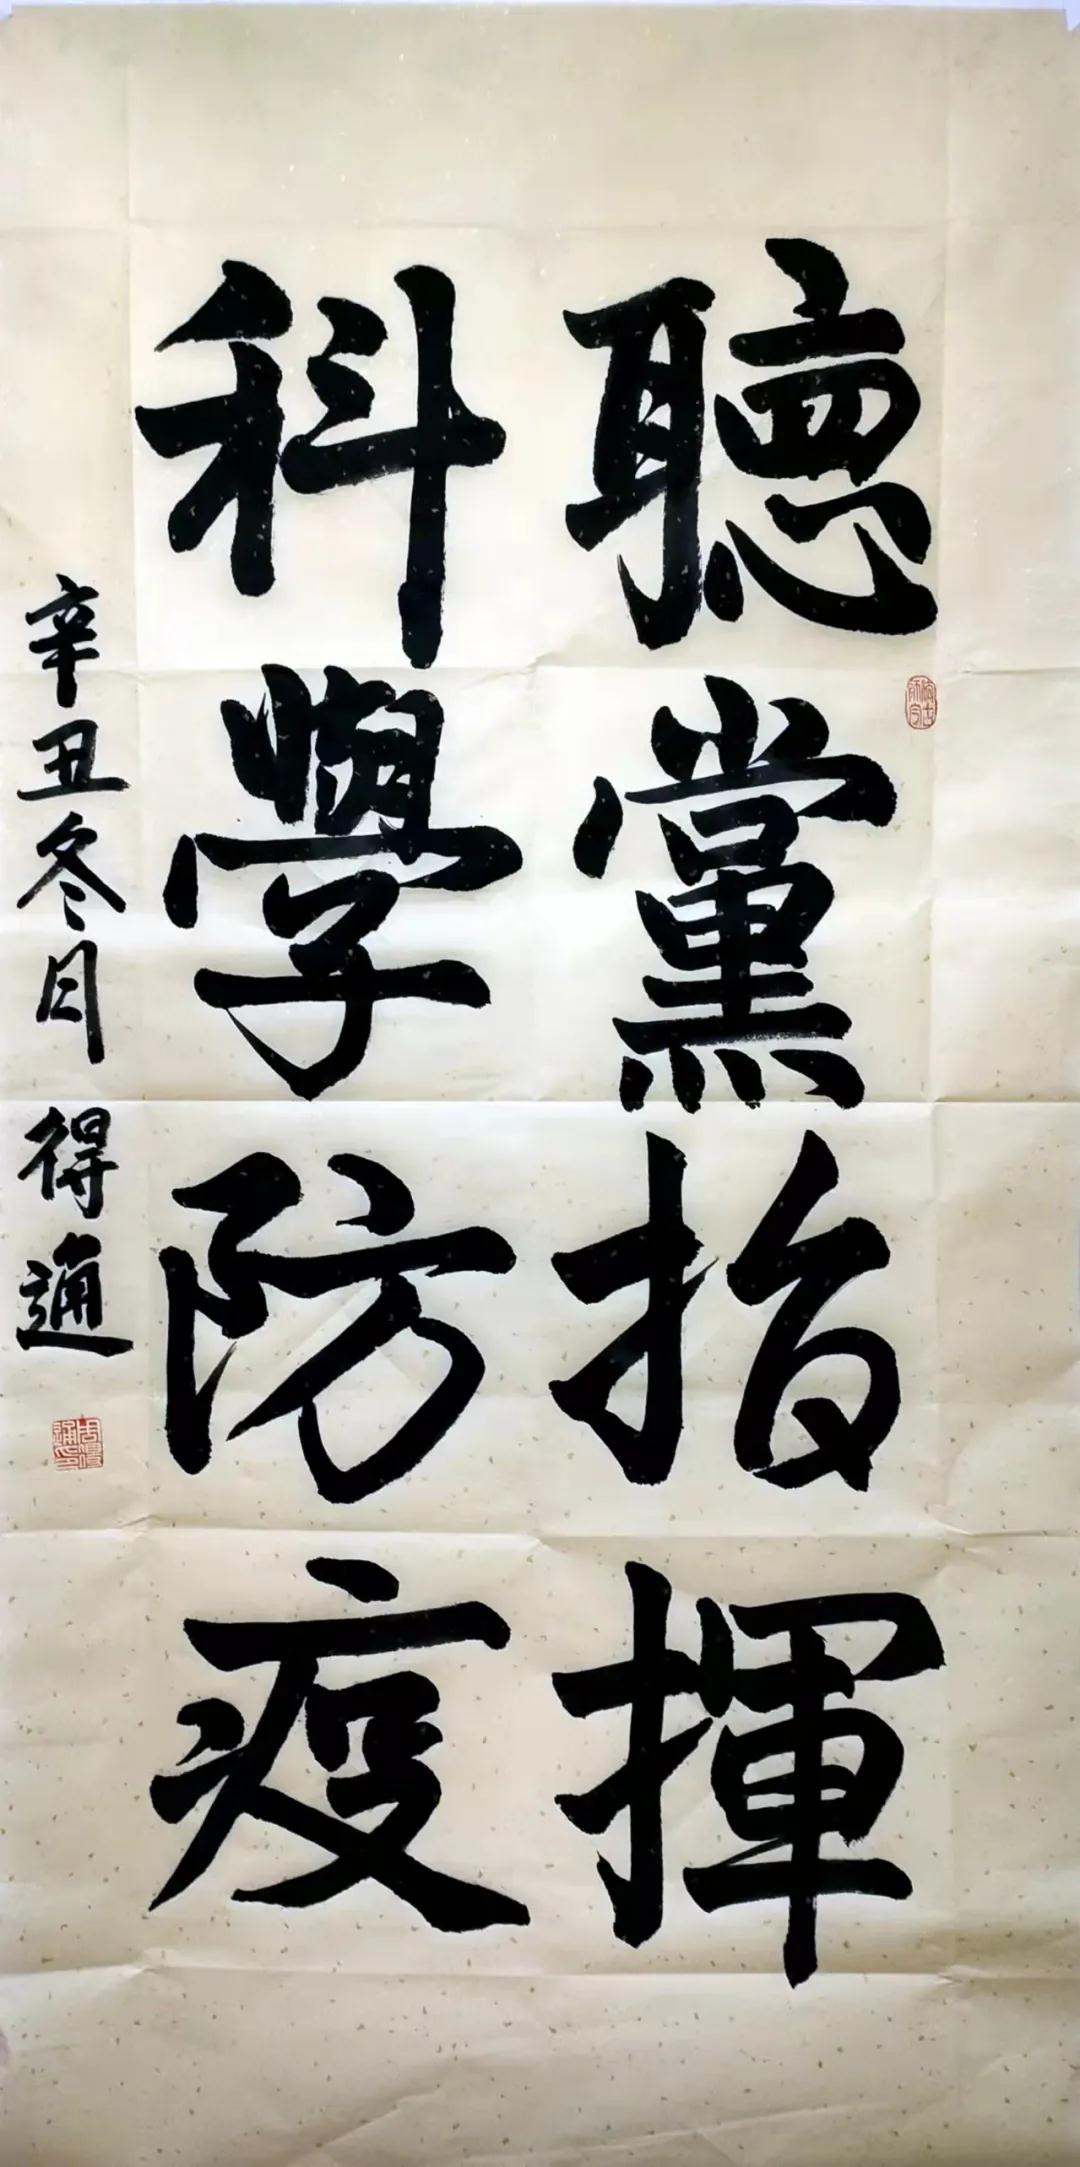 聽黨指揮
科學防疫
辛丑冬月 得通